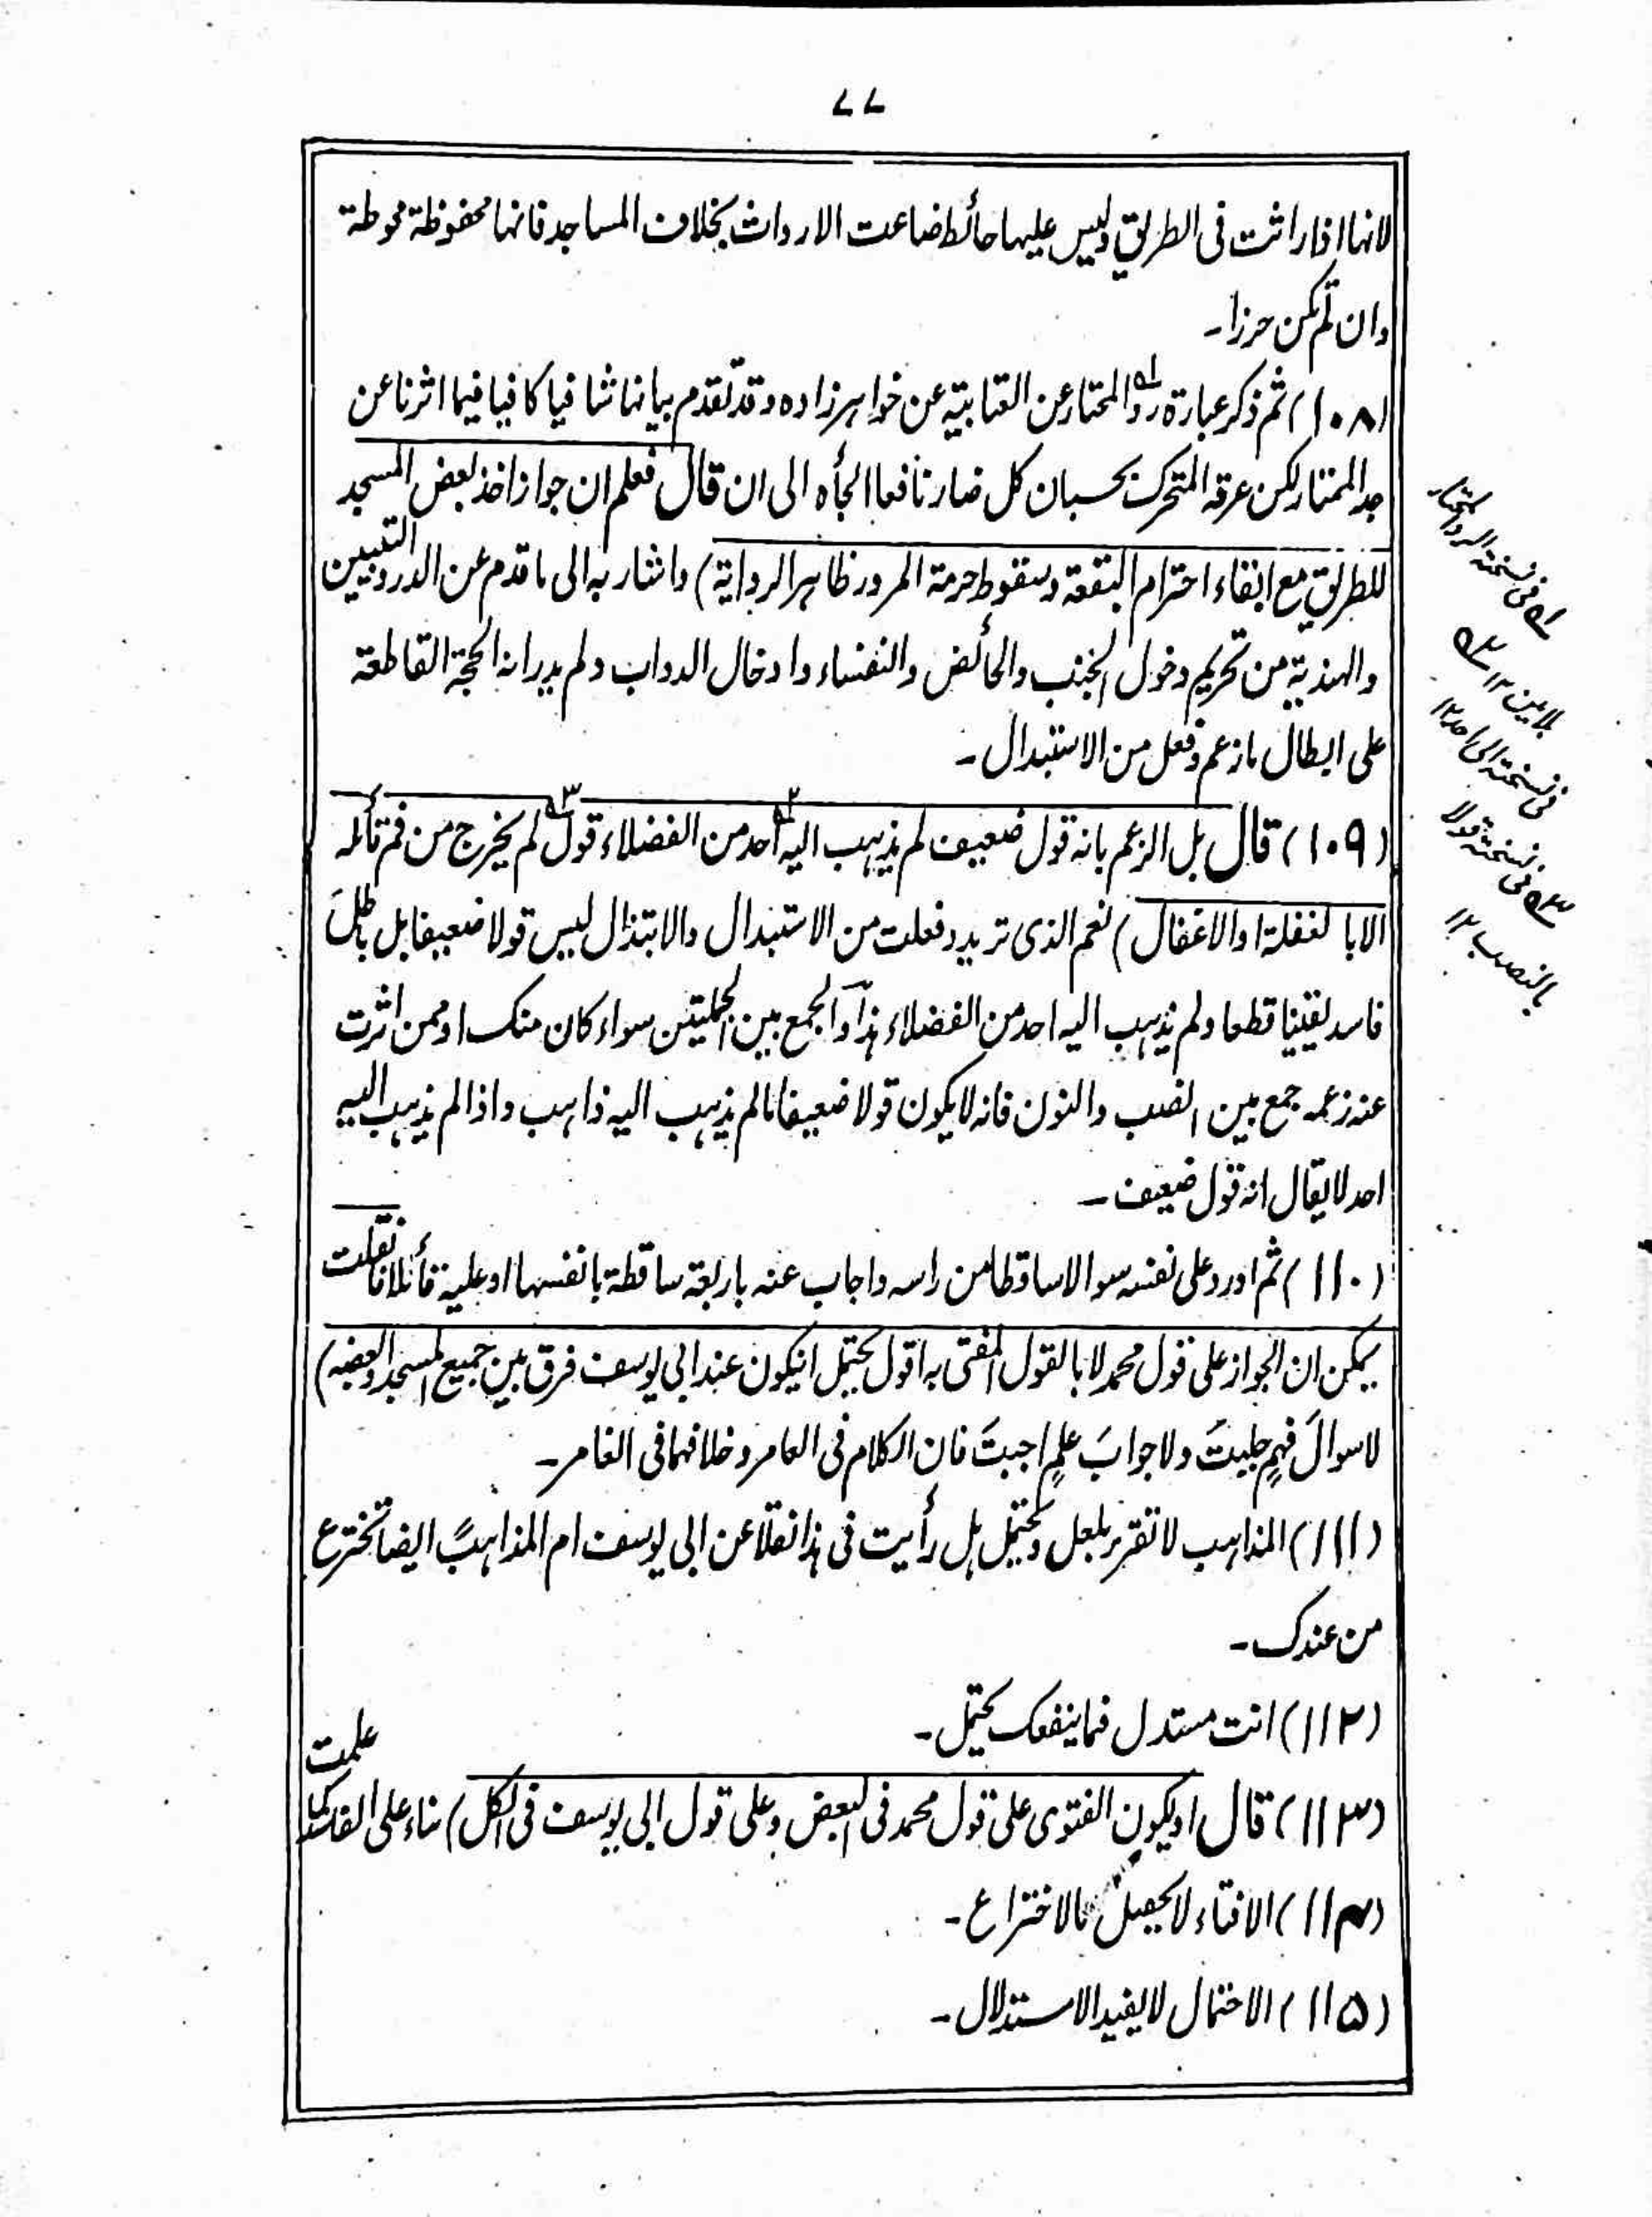 ۷۷
لانها اذا راثت فى الطريق وليس عليها حائط ضاعت الارواث بخلاف المساجد فانها محفوظة محوطة
وان لم تكن حرزا۔
(۱۰۸) ثم ذكر عبارة رد۱ المحتار عن العتابية عن خواهر زاده وقد تقدم بيانها شافيا كافيا فيما اثرنا عن
جد الممتار لكن عرقه المتحرك بحسبان كل ضار نافعا الجأه الى ان قال فعلم ان جواز اخذ بعض المسجد
للطريق مع ابقاء احترام البقعة وسقوط حرمة المرور ظاهر الرواية) واشار به الى ما قدم عن الدر والتبيين
والهندية من تحريم دخول الجنب والحائض والنفساء وادخال الدواب ولم يدر انه الحجة القاطعة
على ابطال ما زعم وفعل من الاستبدال۔
(۱۰۹) قال بل الزعم بانه قول ضعيف لم يذهب اليه۲ احد من الفضلاء قول۳ لم يخرج من فم قائله
الا بالغفلة او الاغفال) نعم الذى تريد وفعلت من الاستبدال والابتذال ليس قولا ضعيفا بل باطلَ
فاسد يقينا قطعا ولم يذهب اليه احد من الفضلاء هذا والجمع بين الجملتين سواء كان منك او ممن اثرت
عنه زعمه جمع بين الضب والنون فانه لا يكون قولا ضعيفا ما لم يذهب اليه ذاهب واذا لم يذهب اليه
احد لا يقال انه قول ضعيف۔
(۱۱۰) ثم اورد على نفسه سوالا ساقطا من راسه واجاب عنه باربعة ساقطة بانفسها او عليه قائلا فانقلت
يمكن ان الجواز على قول محمد لا بالقول المفتى به اقول يحتمل انيكون عند ابى يوسف فرق بين جميع المسجد وبعضه)
لا سوالَ فهمٍ جلبتَ ولا جوابَ علمٍ اجبتَ فان الكلام فى العامر وخلافهما فى الغامر۔
(۱۱۱) المذاهب لا تقرر بلعل ويحتمل هل رأيت فى هذا نقلا عن ابى يوسف ام المذاهب ايضا تخترع
من عندك۔
(۱۱۲) انت مستدل فما ينفعك يحتمل۔
(۱۱۳) قال او يكون الفتوى على قول محمد فى البعض وعلى قول ابى يوسف فى الكل) بناء على الفاسد كما علمت
(۱۱۴) الافتاء لا يحصل بالاختراع۔
(۱۱۵) الاحتمال لا يفيد الاستدلال۔
۱ فى نسخة الرد المحتار
بلامين ۱۲ ۲
فى نسخة الى احد ۱۲
۳ فى نسخة قولا
بالنصب ۱۲